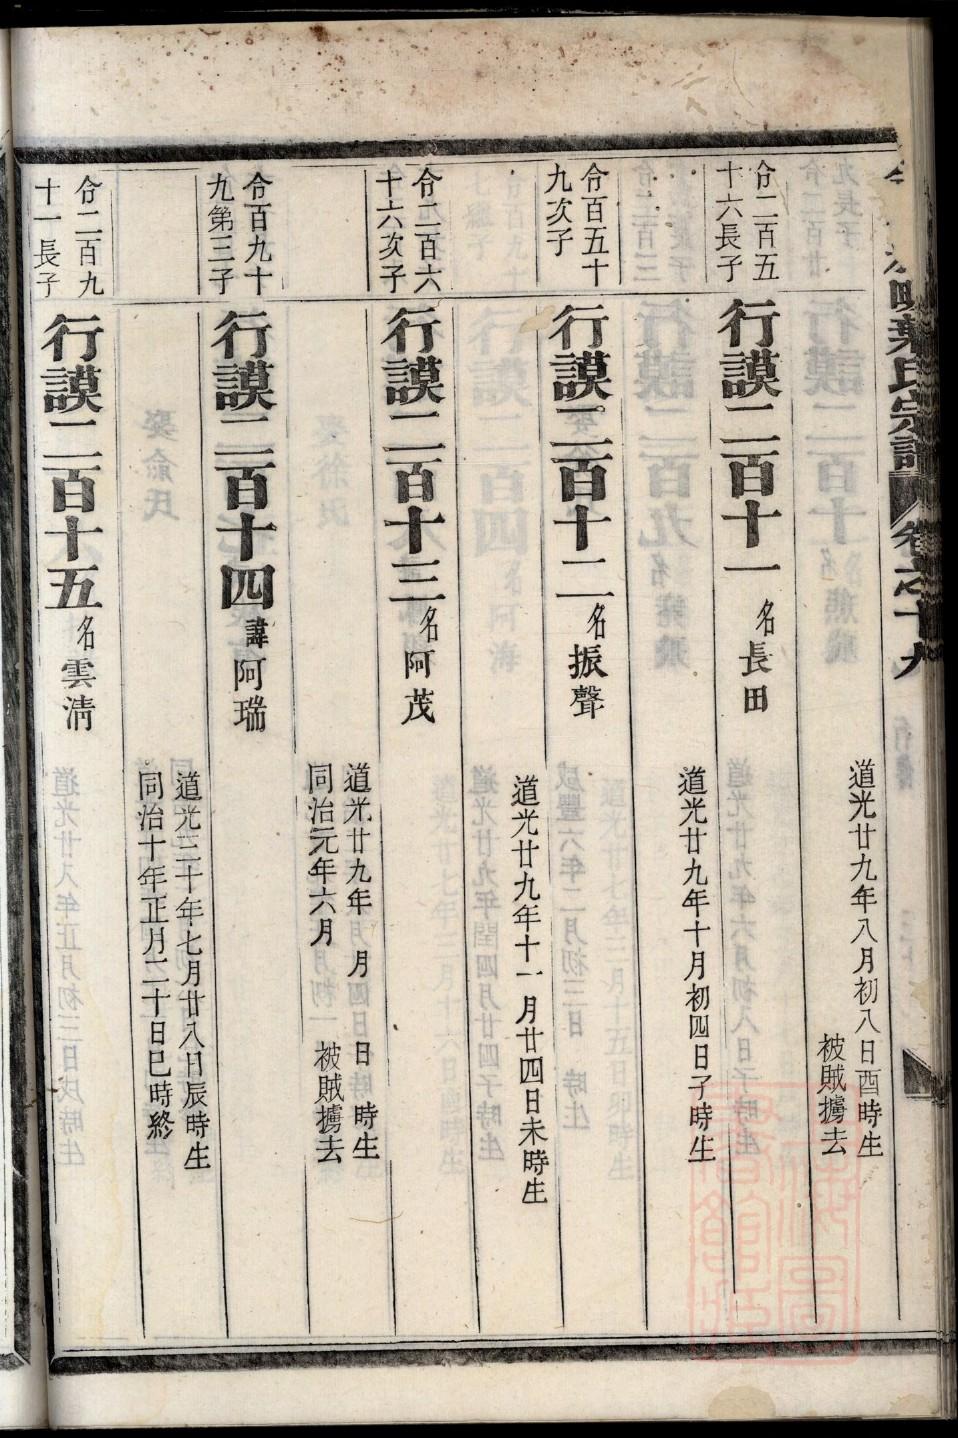 葉氏宗譜 卷之十九
道光廿九年八月初八日酉時生
被賊擄去
仝二百五
十六長子
行謨二百十一 名長田
道光廿九年十月初四日子時生
仝百五十
九次子
行謨二百十二 名振聲
道光廿九年十一月廿四日未時生
仝二百六
十六次子
行謨二百十三 名阿茂
道光廿九年 月 日 時生
同治元年六月 被賊擄去
仝百九十
九第三子
行謨二百十四 諱阿瑞
道光三十年七月廿八日辰時生
同治十年正月二十日巳時終
仝二百九
十一長子
行謨二百十五 名雲清